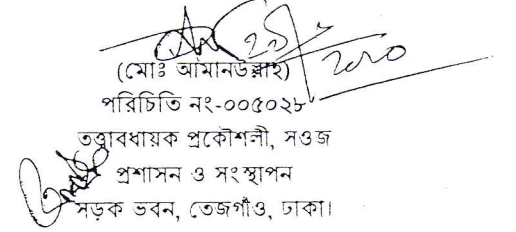 (মোঃ আমানউল্লাহ)
পরিচিতি নং-০০৫০২৮
তত্ত্বাবধায়ক প্রকৌশলী, সওজ
প্রশাসন ও সংস্থাপন
সড়ক ভবন, তেজগাঁও, ঢাকা।